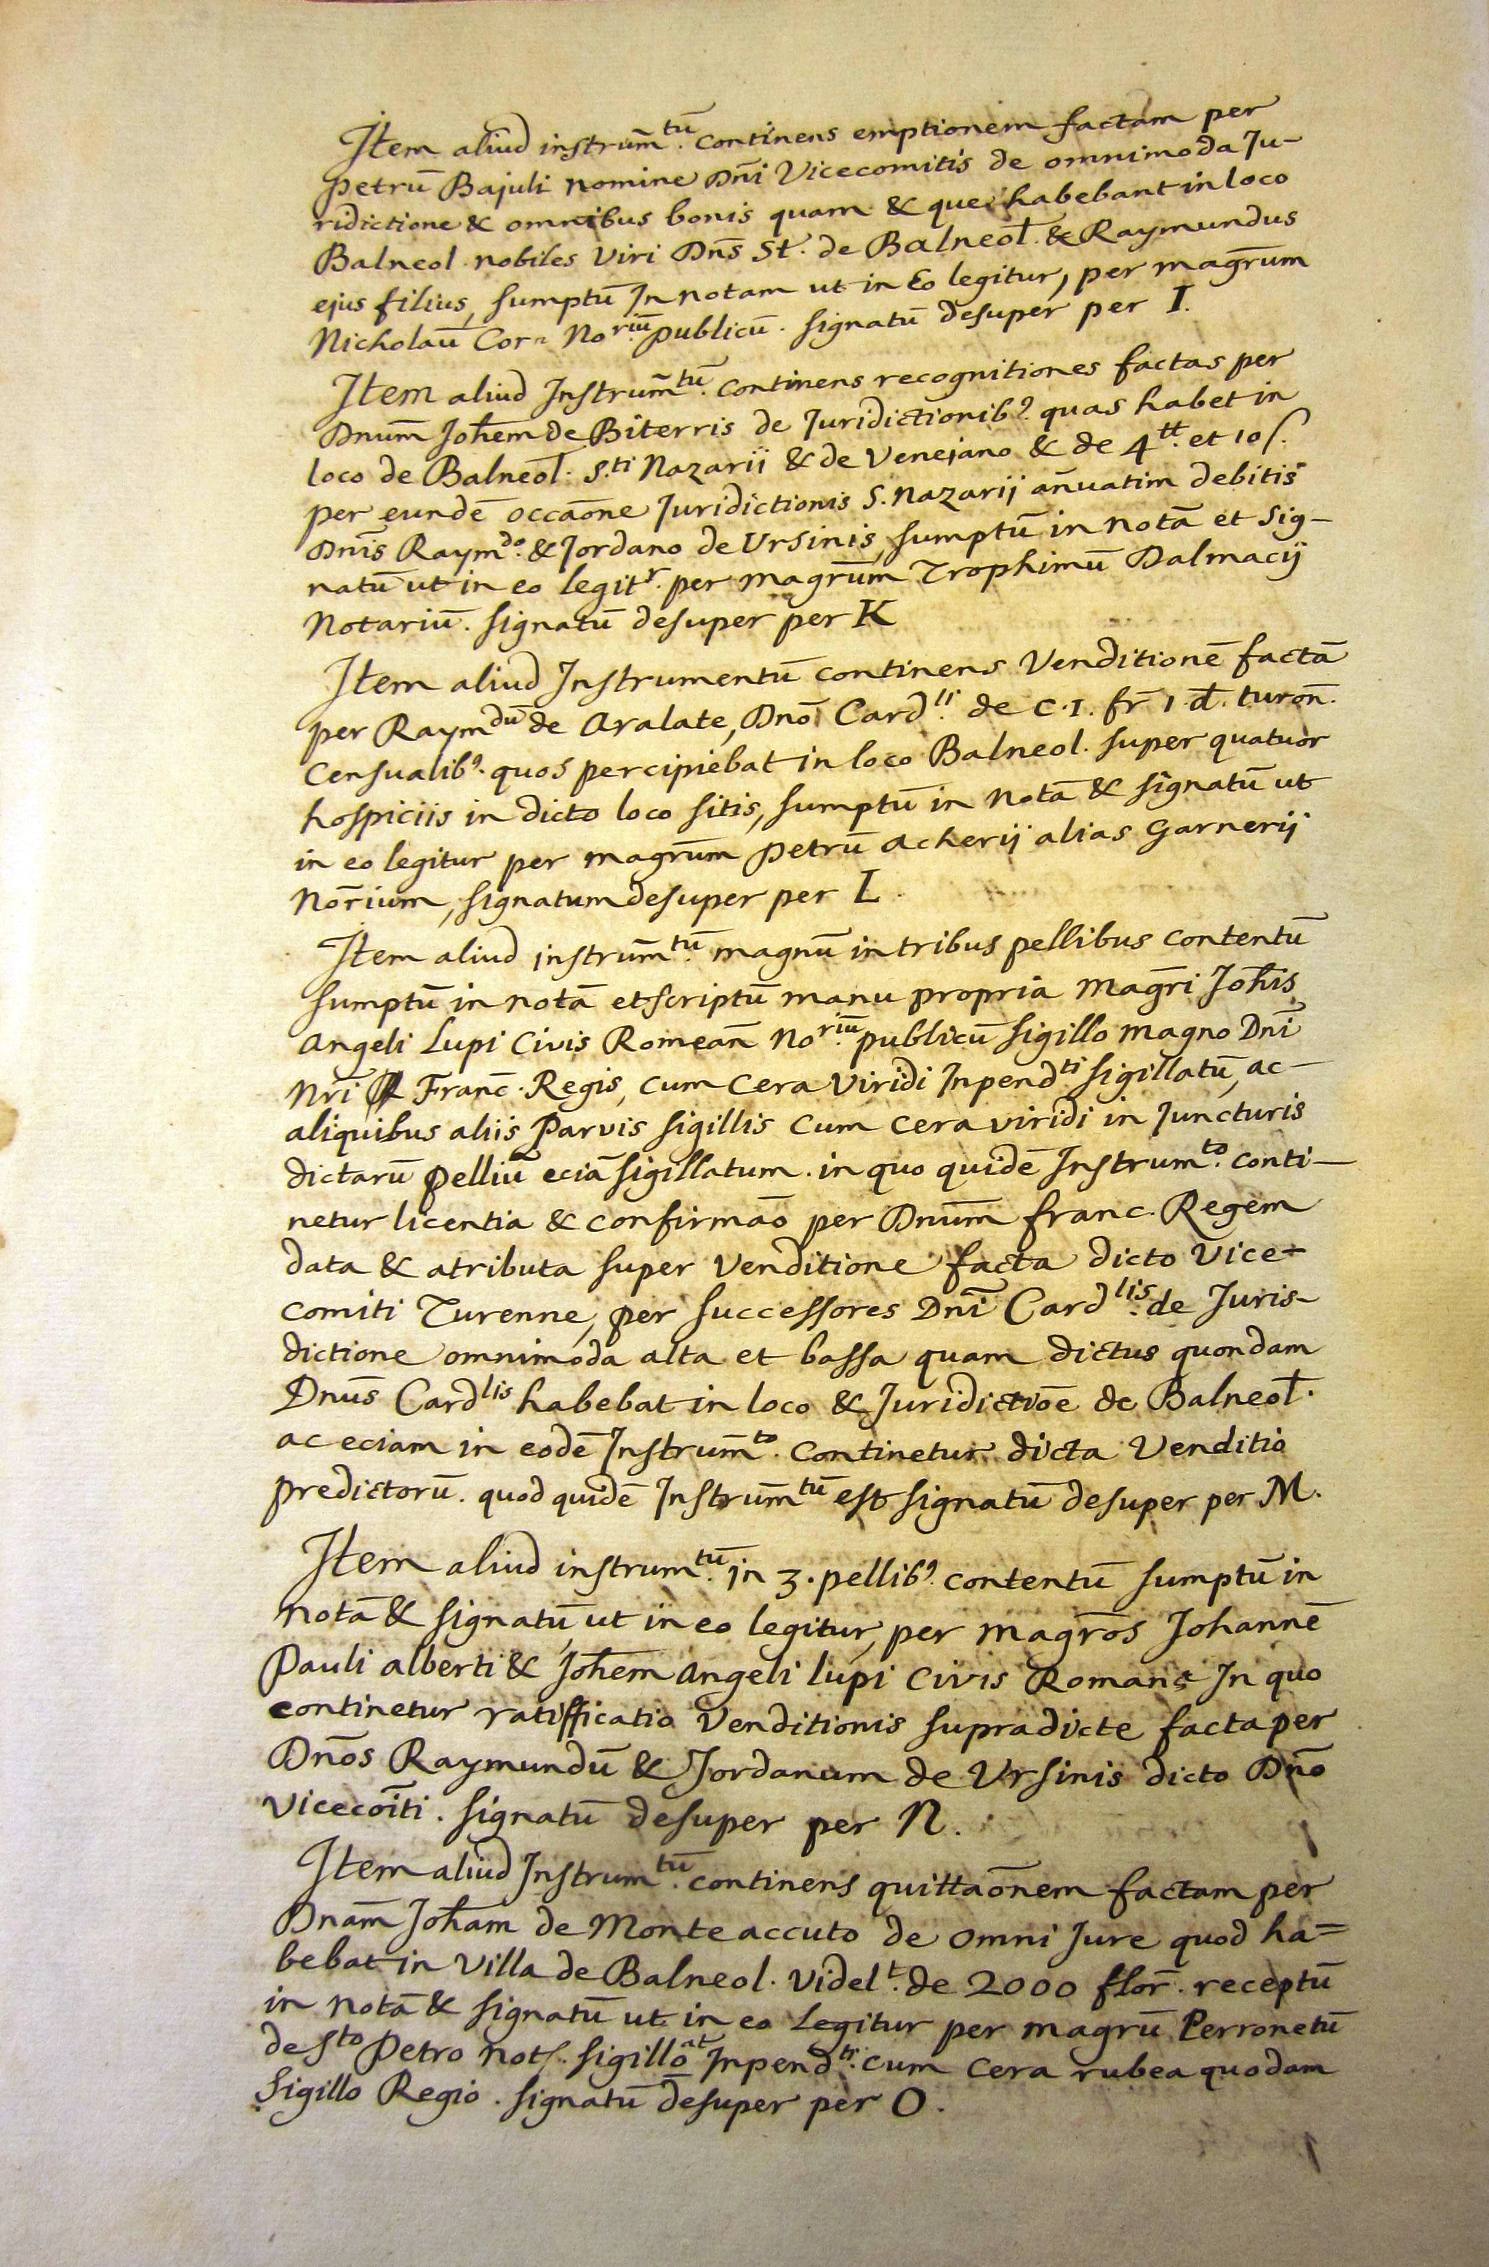 Item aliud instrum̄.tū continens emptionem factam per
petrū Bajuli nomine Dn̄i Vicecomitis de omnimoda Ju-
ridictione & omnibus bonis quam & que habebant in loco
Balneol. nobiles viri Dn̄s St. de Balneol. & Raymundus
ejus filius, sumptū In notam ut in Eo legitur, per magr̄um
Nicholaū Cor. No.riū publicū. signatū desuper per I.
Item aliud Instrum̄.tū continens recognitiones factas per
Dnum̄ Joh̄em de Biterris de Juridictionib9. quas habet in
loco de Balneol. S.ti Nazarii & de Venejano & de 4 tt. et 10 ſ.
per eundē occaōne Juridictionis S. Nazarij an̄uatim debitis
Dn̄is Raym.do & Jordano de Ursinis, sumptū in notā et sig-
natū ut in eo legit.r per magrūm Trophimū Dalmacij
Notariū. signatū desuper per K
Item aliud Instrumentū continens Venditionē factā
per Raym.dū de Aralate, Dnō Card.li de C.I. fr̄ 1. d. turon̄.
Censualib9. quos percipiebat in loco Balneol. super quatuor
hospiciis in dicto loco sitis, sumptū in notā & signatū ut
in eo legitur per magrūm petrū Acherij alias Garnerij
Nōrium, signatum desuper per L.
Item aliud instrum̄.tū magnū in tribus pellibus contentū
sumptū in notā et scriptū manu propria magr̄i Joh̄is
Angeli Lupi Civis Romean̄ No.riū publicū sigillo magno Dn̄i
Nr̄i Franc̄. Regis, cum cera viridi Inpend.ti sigillatū, ac-
aliquibus aliis parvis sigillis cum cera viridi in Juncturis
dictarū pelliū eciā sigillatum. in quo quidē Instrum.to conti-
netur licentia & confirmaō per Dnūm franc. Regem
data & atributa super Venditione facta dicto Vice-
comiti Turenne, per successores Dn̄i Card.lis de Juris-
dictione omnimoda alta et bassa quam dictus quondam
Dnūs Card.lis habebat in loco & Juridictiōe de Balneol.
ac eciam in eodē Instrum̄.to continetur dicta Venditio
predictorū. quod quidē Instrūm.tū est signatū desuper per M.
Item aliud instrum.tū in 3. pellib9. contentū sumptū in
notā & signatū, ut in eo legitur, per magrōs Johannē
Pauli alberti & Joh̄em Angeli lupi Civis Romans In quo
continetur ratifficatio Venditionis supradicte facta per
Dnōs Raymundū & Jordanum de Ursinis dicto Dnō
Vicecoīti. signatū desuper per N.
Item aliud Instrum.tū continens quittaōnem factam per
Dnām Joh̄am de Monte accuto de omni Jure quod ha=
bebat in villa de Balneol. videl.t de 2000 flor̄. receptū
in notā & signatū ut in eo legitur per magrū Perronetū
de S.to Petro not. sigillo at Inpend.ti cum cera rubea quodam
Sigillo Regio. signatū desuper per O.